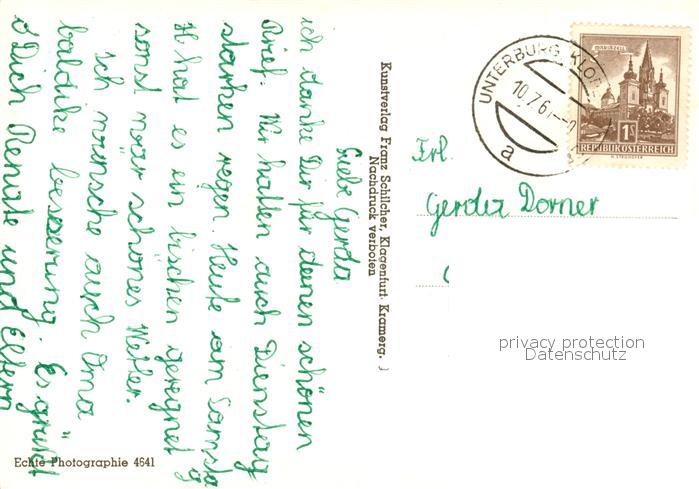 Liebe Gerda
ich danke Dir für deinen schönen
Brief. Wir hatten auch Dienstag
starken regen. Heute am Samsta
hat es ein bischen geregnet
sonst wär schönes Wetter.
Ich wünsche auch Oma
baldike besserung. Es grüßt
Dich Renate und Eltern
Echte Photographie 4641
Kunstverlag Franz Schilcher, Klagenfurt, Kramerg.
Nachdruck verboten
UNTERBURG, KLOP
10.7.6
a
MARIAZELL
1S
REPUBLIK ÖSTERREICH
Frl.
Gerda Dorner
privacy protection
Datenschutz